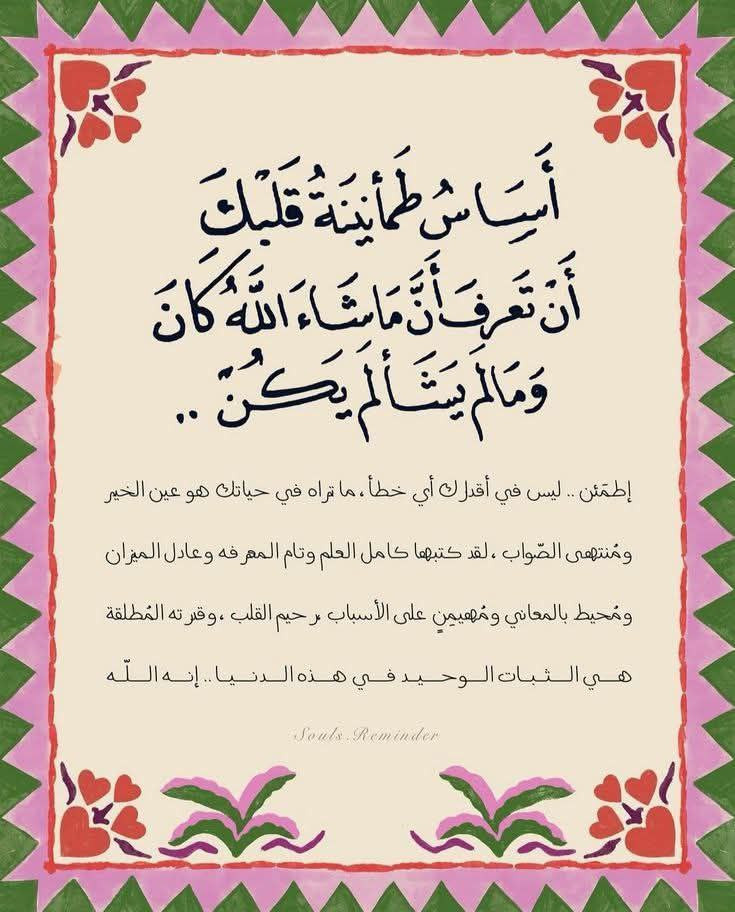 أَسَاسُ طُمَأنِينَةُ قَلْبِكَ
أَنْ تَعرِفَ أَنَّ مَا شَاءَ اللَّهُ كَانَ
وَمَا لَمَ يَشَأ لَمَ يَكُنّ ..
إطمَئن .. ليس في أقدارك أي خطأ ، ما تراه في حياتك هو عين الخير
ومُنتهى الصّواب ، لقد كتبها كامل العلم وتام المعرفه وعادل الميزان
ومُحيط بالمعاني ومُهيمِنٍ على الأسباب ، رحيم القلب ، وقدرته المُطلقة
هـي الـثـبـات الـوحـيـد فـي هـذه الـدنـيـا .. إنـه الـلّـه
Souls.Reminder